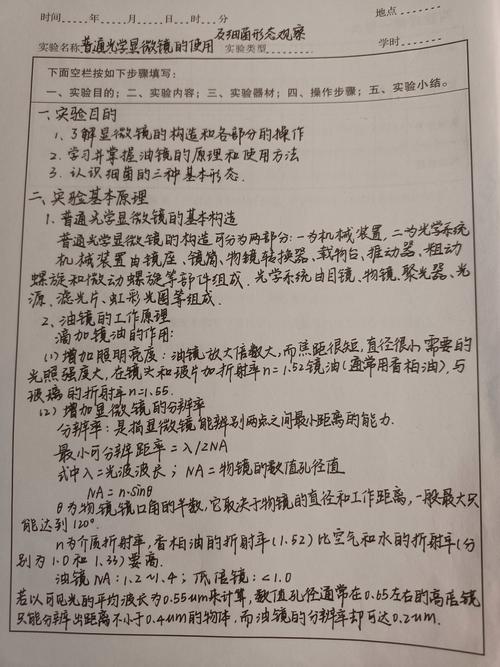 时间____年____月____日____时____分 地点____
实验名称 普通光学显微镜的使用及细菌形态观察 实验类型____ 学时____
下面空栏按如下步骤填写:
一、实验目的;二、实验内容;三、实验器材;四、操作步骤;五、实验小结。
一、实验目的
1、了解显微镜的构造和各部分的操作
2、学习并掌握油镜的原理和使用方法
3、认识细菌的三种基本形态.
二、实验基本原理
1、普通光学显微镜的基本构造
普通光学显微镜的构造可分为两部分:一为机械装置,二为光学系统
机械装置由镜座、镜筒、物镜转换器、载物台、推动器、粗动
螺旋和微动螺旋等部件组成.光学系统由目镜、物镜、聚光器、光
源、滤光片、虹彩光圈等组成.
2、油镜的工作原理
滴加镜油的作用:
(1)增加照明亮度:油镜放大倍数大,而焦距很短,直径很小,需要的
光照强度大,在镜头和玻片加折射率n=1.52镜油(通常用香柏油),与
玻璃的折射率n=1.55.
(2)增加显微镜的分辨率
分辨率:是指显微镜能辨别两点之间最小距离的能力.
最小可分辨距率=λ/2NA
式中λ=光波波长;NA=物镜的数值孔径值
NA=n·sinθ
θ为物镜镜口角的半数,它取决于物镜的直径和工作距离,一般最大只
能达到120°.
n为介质折射率,香柏油的折射率(1.52)比空气和水的折射率(分
别为1.0和1.33)要高.
油镜NA:1.2~1.4;低倍镜:<1.0
若以可见光的平均波长为0.55um来计算,数值孔径通常在0.65左右的高倍镜
只能分辨出距离不小于0.4um的物体,而油镜的分辨率却可达0.2um.